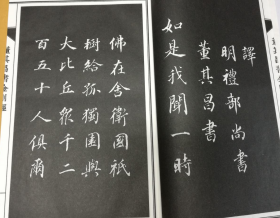 譯
明禮部尚書
董其昌書
如是我聞一時
佛在舍衛國祇
樹給孤獨園與
大比丘衆千二
百五十人俱爾